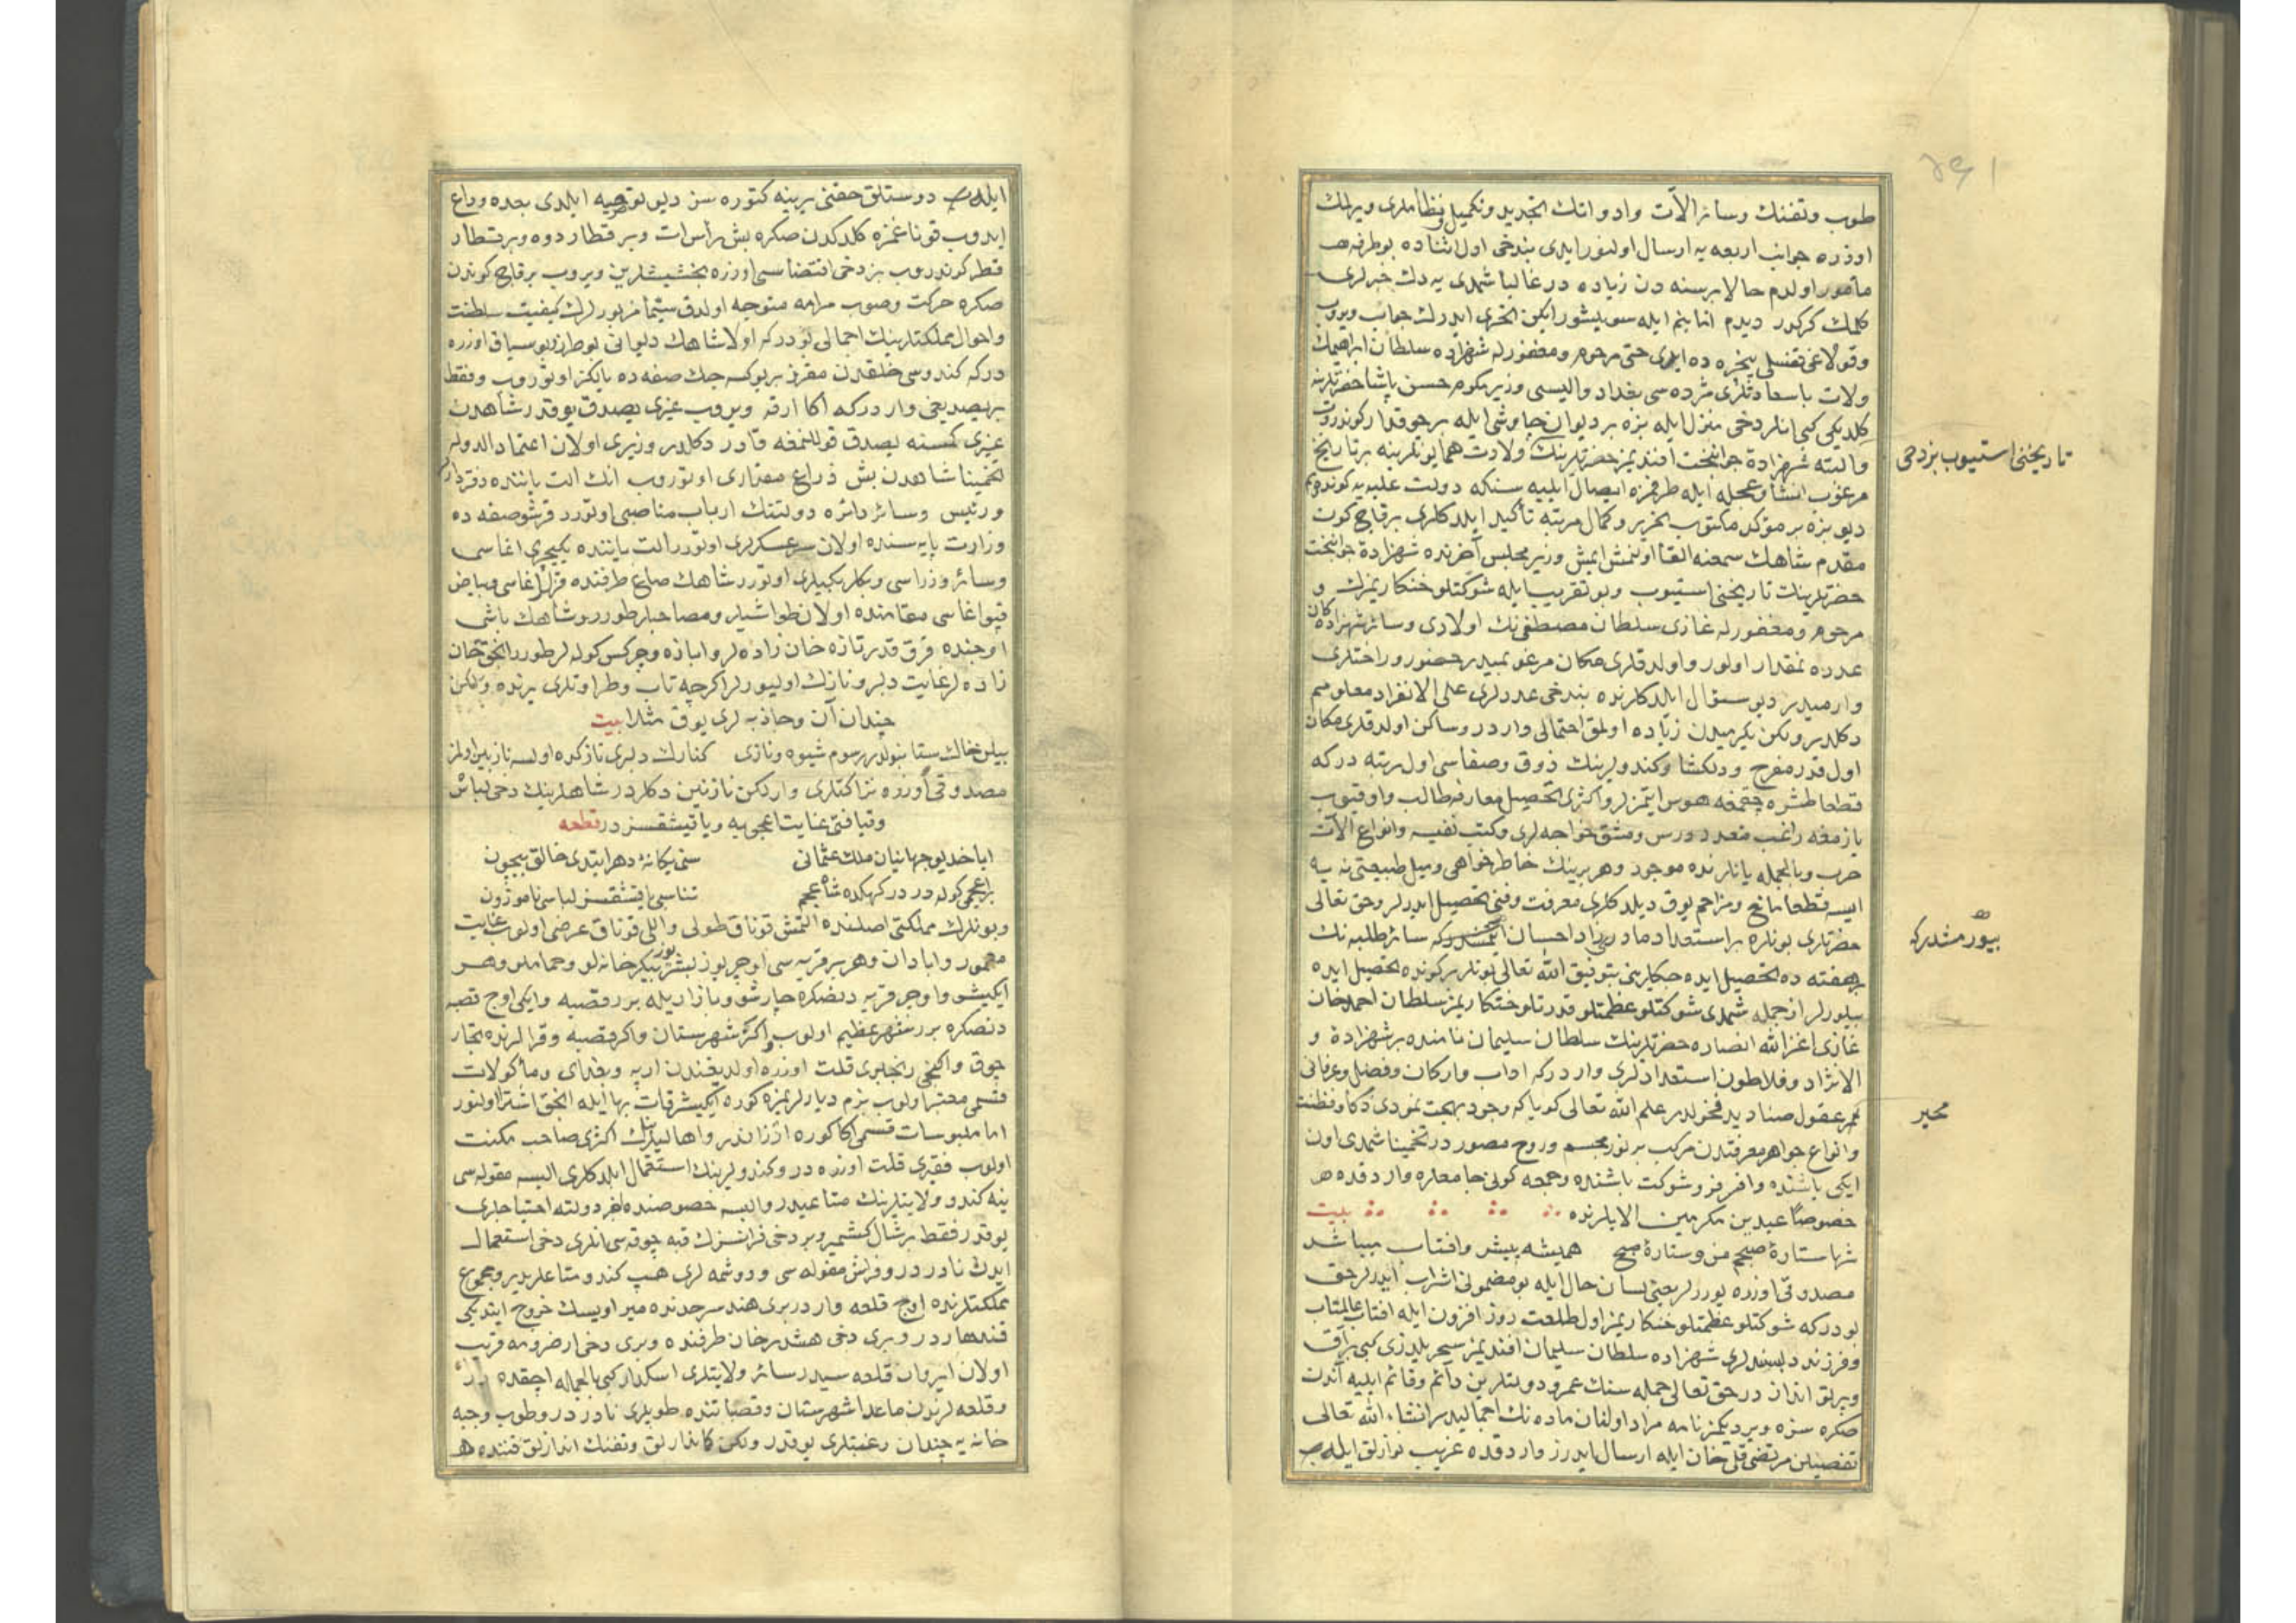 طوب وتفنك وسائر الآت وادواتك تجديد وتكميل ونظاملری ویرلمك
اوزره جوانب اربعه یه ارسال اولنور ایدی بندخی اول اثناده بو طرفه
مأمور اولدم حالا برسنه دن زیاده در غالبا شمدی یه دك خبرلری
كلمك كركدر دیدم اما بنم ایله سویلشور ایكن اخری ایدرك جواب ویروب
وقولاغی قفسلی پنجره ده ایدی حتی مرحوم ومغفور له شهزاده سلطان ابراهیمك
ولادت باسعادتلری مژده سی بغداد والیسی وزیر مكرم حسن پاشا حضرتلرینه
كلدیكی كبی انلر دخی منزل ایله بزه بر دیوان چاوشی ایله بر چوقدار كوندروب
والبته شهزادهٔ جوانبخت افندیمز حضرتلرینك ولادت همایونلرینه بر تاریخ
مرغوب انشا وعجله ایله طرفمزه ایصال ایلیه سنكه دولت علیه یه كونده رم
دیو بزه بر مؤكد مكتوب تحریر وكمال مرتبه تأكید ایلدكلری برقاچ كون
مقدم شاهك سمعنه القا اولنمش ایمش وزیر مجلس آخرنده شهزادهٔ جوانبخت
حضرتلرینك تاریخنی استیوب وبو تقریب ایله شوكتلو خنكاریمزك و
مرحوم ومغفور له غازی سلطان مصطفی نك اولادی وسائر شهزاده كان
عدده نمقدار اولور واولدقلری مكان مرغوبمیدر حضور وراحتلری
وارمیدر دیو سؤال ایلدكلرنده بندخی عددلری علی الانفراد معلومم
دكلدر ولكن یكرمیدن زیاده اولمق احتمالی واردر وساكن اولدقلری مكان
اول قدر مفرح ودلكشا وكندولرینك ذوق وصفاسی اول مرتبه در كه
قطعا طشره چقمغه هوس ایتمزلر واكثری تحصیل معارفه طالب واوقیوب
یازمغه راغب متعدد درس ومشق خواجه لری وكتب نفیسه وانواع الآت
حرب وبالجمله یانلرنده موجود وهر برینك خاطرخواهی ومیل طبیعتی نه یه
ایسه قطعا مانع ومزاحم یوق دیلدكلری معرفت وفنی تحصیل ایدرلر وحق تعالی
حضرتلری بونلره بر استعداد مادرزاد احسان ایتمشدر كه سائر طلبه نك
بر هفته ده تحصیل ایده جكلرینی بتوفیق الله تعالی بونلر بر كونده تحصیل ایده
بیلورلر از جمله شمدی شوكتلو عظمتلو قدرتلو خنكاریمز سلطان احمد خان
غازی اعز الله انصاره حضرتلرینك سلطان سلیمان نامنده بر شهزادهٔ و
الانژاد وفلاطون استعدادلری واردر كه اداب واركان وفضل وعرفانی
عقول صنادید فحولدر علم الله تعالی كویا كه وجود بهجت نمودی ذكا وفطنت
وانواع جواهر معرفتدن مركب بر نور مجسم وروح مصور در تخمینا شمدی اون
ایكی یاشنده وافر فر وشوكت باشنده وجمعه كونی جامعلره واردقده
خصوصا عیدین مكرمین الایلرنده بیت
شها ستارهٔ صبحم من وستارهٔ صبح همیشه پیشرو افتاب میباشد
مصدوقی اوزره یورر لر یعنی لسان حال ایله بو مضمونی اشراب ایدرلر حق
بودر كه شوكتلو عظمتلو خنكاریمز اول طلعت روز افزون ایله افتاب عالمتاب
وفرزند دلبندلری شهزاده سلطان سلیمان افندیمز سحر یلدزی كبی براق
وپرتو انداز در حق تعالی جمله سنك عمر ودولتلرین دائم وقائم ایلیه آندن
صكره سزه ویردیكمز نامه مراد اولنان ماده نك اجمالیدر انشاء الله تعالی
تفصیلن مرتضی قلی خان ایله ارسال ایدرز واردقده غریب نوازلق ایله
تاریخنی استیوب بزدخی
بیورمشدر كه
محیر
ایله دوستلق حقنی یرینه كتوره سن دیو توصیه ایلدی بعده وداع
ایدوب قوناغمزه كلدكدن صكره بش رأس ات وبر قطار دوه وبر قطار
قطر كوندروب بزدخی اقتضاسی اوزره بخشیشلرین ویروب برقاچ كوندن
صكره حركت وصوب مرامه متوجه اولدق سیما مزبورلرك كیفیت سلطنت
واحوال مملكتلرینك اجمالی بودر كه اولا شاهك دیوانی بو طرز وبو سیاق اوزره
در كه كندوسی خلقدن مفرز بر یوكسه جك صفه ده یالكز اوتوروب وفقط
بریصدیغی واردر كه اكا ارقه ویروب غیری یصدق یوقدر شاهدن
غیری كمسنه یصدق قوللنمغه قادر دكلدر وزیری اولان اعتماد الدوله
تخمینا شاهدن بش ذراع مقداری اوتوروب انك الت یاننده دفتردار
ورئیس وسائر دائره دولتنك ارباب مناصبی اوتورر قرشو صفه ده
وزارت پایه سنده اولان سرعسكرلری اوتورر الت یاننده یكیچری اغاسی
وسائر وزراسی وبكلربكیلری اوتورر شاهك صاغ طرفنده قزلر اغاسی وبیاض
قپو اغاسی مقامنده اولان طواشیلر ومصاحبلر طورر وشاهك باشی
اوجنده قرق قدر تازه خان زاده لر وابازه وچركس كوله لر طورر انجق خان
زاده لر غایت دلبر ونازك اولیورلر اكرچه تاب وطراوتلری یرنده ولكن
چندان آن وجاذبه لری یوق مثلا بیت
بیلن خاك ستانبولدر رسوم شیوه ونازی كنارك دلبری نازكده اولسه نازنین اولمز
مصدوقی اوزره نزاكتلری وار لكن نازنین دكلدر شاهلرینك دخی لباس
وقیافتی غایت اعجمیه ویاقیشقسز در قطعه
ایا خدیو جهانبان ملك عثمانی سنی یكانهٔ دهر ایتدی خالق بیچون
بر اعجمی كوله در دركهكده شاه عجم تناسبی یاقشقسز لباسی ناموزون
وبونلرك مملكتی اصلنده التمش قوناق طولی واللی قوناق عرضی اولوب غایت
معمور وابادان وهر بر قریه سی اوچر یوز بشر یوز بیكر خانه لو وحماملو وهر
ایكیشر واوچر قریه دنصكره چارشو وبازار ایله برر قصبه وایكی اوچ قصبه
دنصكره برر شهر عظیم اولوب اكثر شهرستان واكثر قصبه وقرالرنده تجار
چوق واكنجی رنجبری قلت اوزره اولدیغندن ارپه وبغدای ومأكولات
قسمی معتبر اولوب بزم دیارلریمزه كوره ایكیشر قات بها ایله انجق اشترا اولنور
اما ملبوسات قسمی اكا كوره ارزاندر واهالیسنك اكثری صاحب مكنت
اولوب فقیری قلت اوزره در وكندولرینك استعمال ایلدكلری البسه مقوله سی
ینه كندو ولایتلرینك متاعیدر والبسه خصوصنده اخر دولته احتیاجلری
یوقدر فقط بر شال كشمیر وبر دخی فرانسزك قبه چوقه سی انلری دخی استعمال
ایدن نادر در وفراش مقوله سی ودوشمه لری هپ كندو متاعلریدر ومجموع
مملكتلرنده اوچ قلعه واردر بری هند سرحدنده میر اویسك خروج ایتدیكی
قندهار در وبری دخی هشدرخان طرفنده وبری دخی ارضرومه قریب
اولان ایروان قلعه سیدر سائر ولایتلری اسكدار كبی بالجمله اچقده در
وقلعه لرندن ماعدا شهرستان وقصباتنده طوپلری نادر در وطوب وجبه
خانه یه چندان رغبتلری یوقدر ولكن كماندارلق وتفنك اندازلق فننده